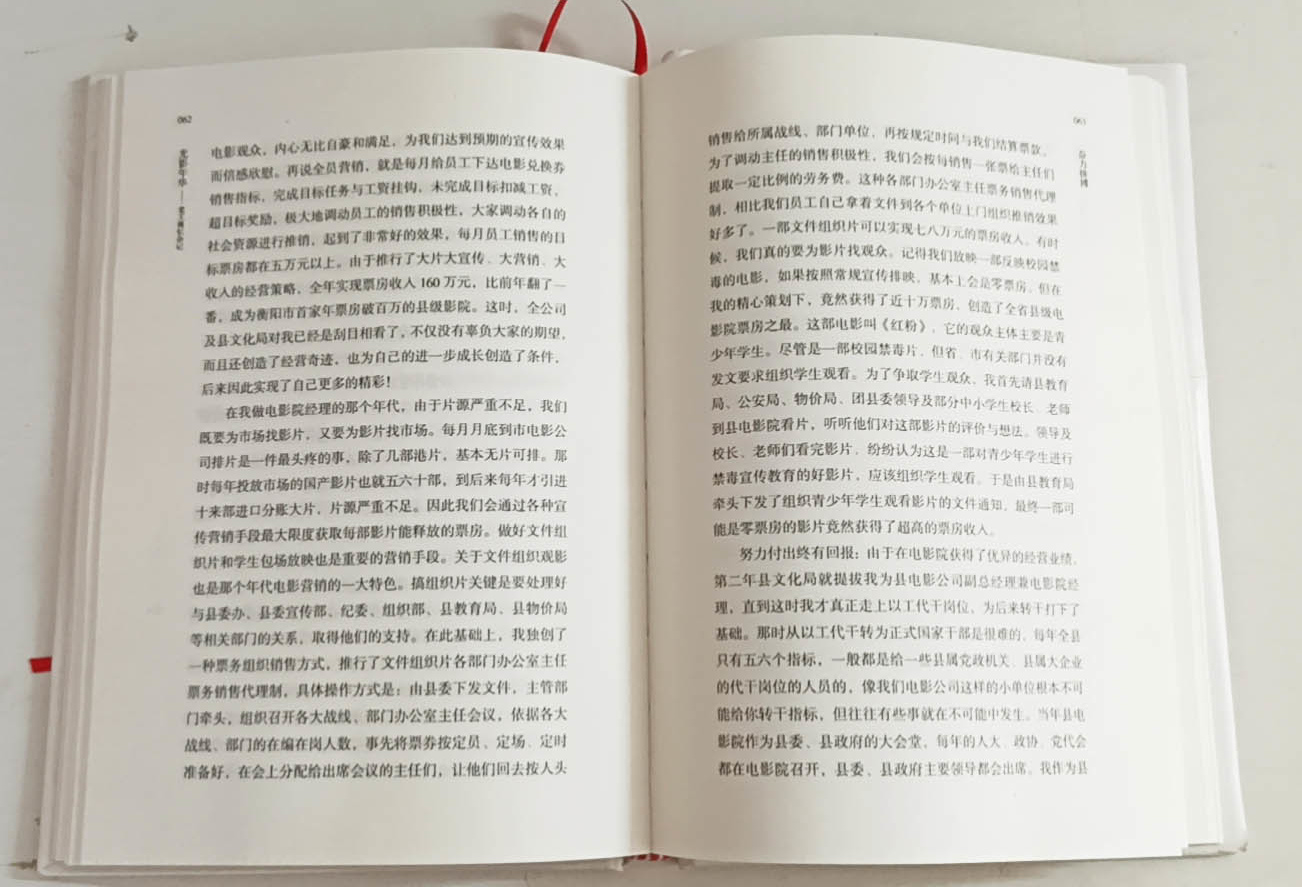 062
光影年华——
电影观众，内心无比自豪和满足，为我们达到预期的宣传效果
而倍感欣慰。再说全员营销，就是每月给员工下达电影兑换券
销售指标，完成目标任务与工资挂钩，未完成目标扣减工资，
超目标奖励，极大地调动员工的销售积极性，大家调动各自的
社会资源进行推销，起到了非常好的效果，每月员工销售的目
标票房都在五万元以上。由于推行了大片大宣传、大营销、大
收入的经营策略，全年实现票房收入 160 万元，比前年翻了一
番，成为衡阳市首家年票房破百万的县级影院。这时，全公司
及县文化局对我已经是刮目相看了，不仅没有辜负大家的期望，
而且还创造了经营奇迹，也为自己的进一步成长创造了条件，
后来因此实现了自己更多的精彩！
在我做电影院经理的那个年代，由于片源严重不足，我们
既要为市场找影片，又要为影片找市场。每月月底到市电影公
司排片是一件最头疼的事，除了几部港片，基本无片可排。那
时每年投放市场的国产影片也就五六十部，到后来每年才引进
十来部进口分账大片，片源严重不足。因此我们会通过各种宣
传营销手段最大限度获取每部影片能释放的票房。做好文件组
织片和学生包场放映也是重要的营销手段。关于文件组织观影
也是那个年代电影营销的一大特色。搞组织片关键是要处理好
与县委办、县委宣传部、纪委、组织部、县教育局、县物价局
等相关部门的关系，取得他们的支持。在此基础上，我独创了
一种票务组织销售方式，推行了文件组织片各部门办公室主任
票务销售代理制，具体操作方式是：由县委下发文件，主管部
门牵头，组织召开各大战线、部门办公室主任会议，依据各大
战线、部门的在编在岗人数，事先将票券按定员、定场、定时
准备好，在会上分配给出席会议的主任们，让他们回去按人头
063
奋力拼搏
销售给所属战线、部门单位，再按规定时间与我们结算票款。
为了调动主任的销售积极性，我们会按每销售一张票给主任们
提取一定比例的劳务费。这种各部门办公室主任票务销售代理
制，相比我们员工自己拿着文件到各个单位上门组织推销效果
好多了。一部文件组织片可以实现七八万元的票房收入。有时
候，我们真的要为影片找观众。记得我们放映一部反映校园禁
毒的电影，如果按照常规宣传排映，基本上会是零票房。但在
我的精心策划下，竟然获得了近十万票房，创造了全省县级电
影院票房之最。这部电影叫《红粉》，它的观众主体主要是青
少年学生。尽管是一部校园禁毒片，但省、市有关部门并没有
发文要求组织学生观看。为了争取学生观众，我首先请县教育
局、公安局、物价局、团县委领导及部分中小学生校长、老师
到县电影院看片，听听他们对这部影片的评价与想法。领导及
校长、老师们看完影片，纷纷认为这是一部对青少年学生进行
禁毒宣传教育的好影片，应该组织学生观看。于是由县教育局
牵头下发了组织青少年学生观看影片的文件通知，最终一部可
能是零票房的影片竟然获得了超高的票房收入。
努力付出终有回报：由于在电影院获得了优异的经营业绩，
第二年县文化局就提拔我为县电影公司副总经理兼电影院经
理，直到这时我才真正走上以工代干岗位，为后来转干打下了
基础。那时从以工代干转为正式国家干部是很难的，每年全县
只有五六个指标，一般都是给一些县属党政机关、县属大企业
的代干岗位的人员的，像我们电影公司这样的小单位根本不可
能给你转干指标，但往往有些事就在不可能中发生。当年县电
影院作为县委、县政府的大会堂，每年的人大、政协、党代会
都在电影院召开，县委、县政府主要领导都会出席。我作为县